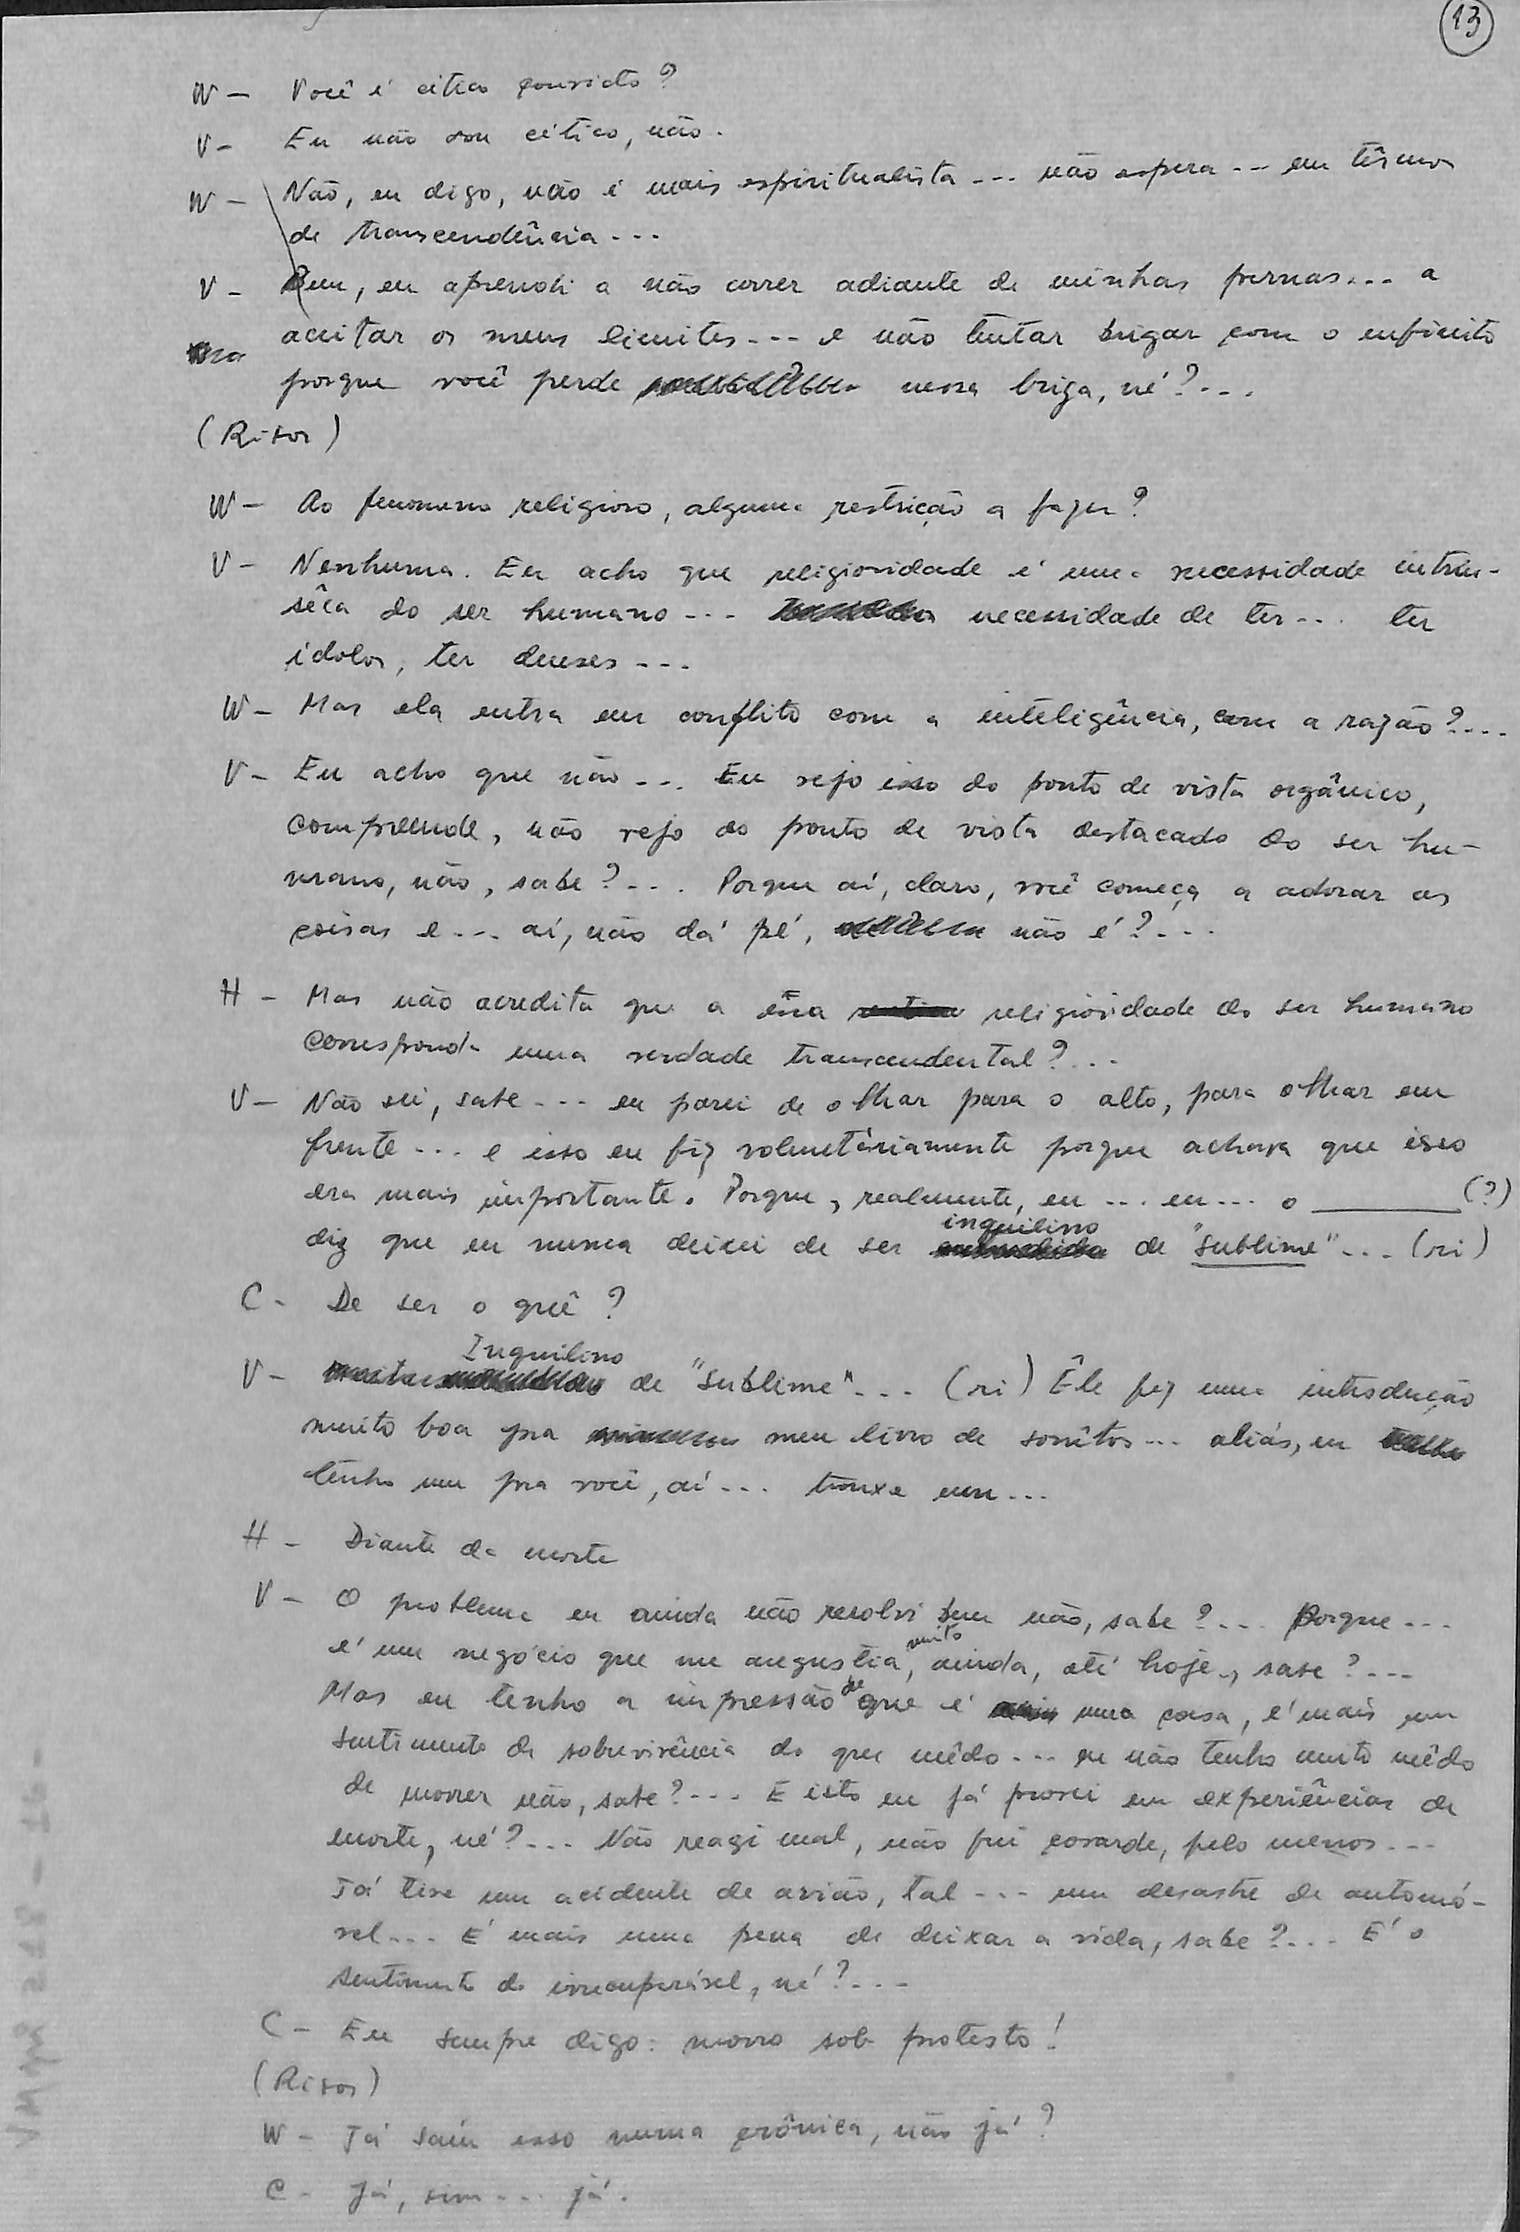 13
W - Você é cético convicto?
V - Eu não sou cético, não.
W - Não, eu digo, não é mais espiritualista --- não espera --- em têrmos
de transcendência ---
V - Bem, eu aprendi a não correr adiante de minhas pernas --- a
aceitar os meus limites --- e não tentar brigar com o infinito
porque você perde nessa briga, né? ---
(Risos)
W - Ao fenomeno religioso, alguma restrição a fazer?
V - Nenhuma. Eu acho que religiosidade é uma necessidade intrín-
sêca do ser humano --- necessidade de ter --- ter
ídolos, ter deuses ---
W - Mas ela entra em conflito com a inteligência, com a razão? ---
V - Eu acho que não --- Eu vejo isso do ponto de vista orgânico,
compreende, não vejo do ponto de vista destacado do ser hu-
mano, não, sabe? --- Porque aí, claro, você começa a adorar as
coisas e --- aí, não dá pé, não é? ---
H - Mas não acredita que a essa religiosidade do ser humano
corresponda uma verdade transcendental? ---
V - Não sei, sabe --- eu parei de olhar para o alto, para olhar em
frente --- e isso eu fiz voluntàriamente porque achava que isso
era mais importante. Porque, realmente, eu --- eu --- o ______ (?)
diz que eu nunca deixei de ser inquilino de "sublime" --- (ri)
C - De ser o quê?
V - Inquilino de "sublime" --- (ri) Êle fez uma introdução
muito boa pra meu livro de sonêtos --- aliás, eu
tenho um pra você, aí --- trouxe um ---
H - Diante da morte
V - O problema eu ainda não resolvi bem não, sabe? --- Porque ---
é um negócio que me angustia, muito ainda, até hoje, sabe? ---
Mas eu tenho a impressão de que é uma coisa, é mais um
sentimento de sobrevivência do que mêdo --- eu não tenho muito mêdo
de morrer não, sabe? --- E isto eu já provei em experiências de
morte, né? --- Não reagi mal, não fui covarde, pelo menos ---
Já tive um acidente de avião, tal --- um desastre de automó-
vel --- É mais uma pena de deixar a vida, sabe? --- É o
sentimento do irrecuperável, né? ---
C - Eu sempre digo: morro sob protesto!
(Risos)
W - Já saíu isso numa crônica, não já?
C - Já, sim --- já.